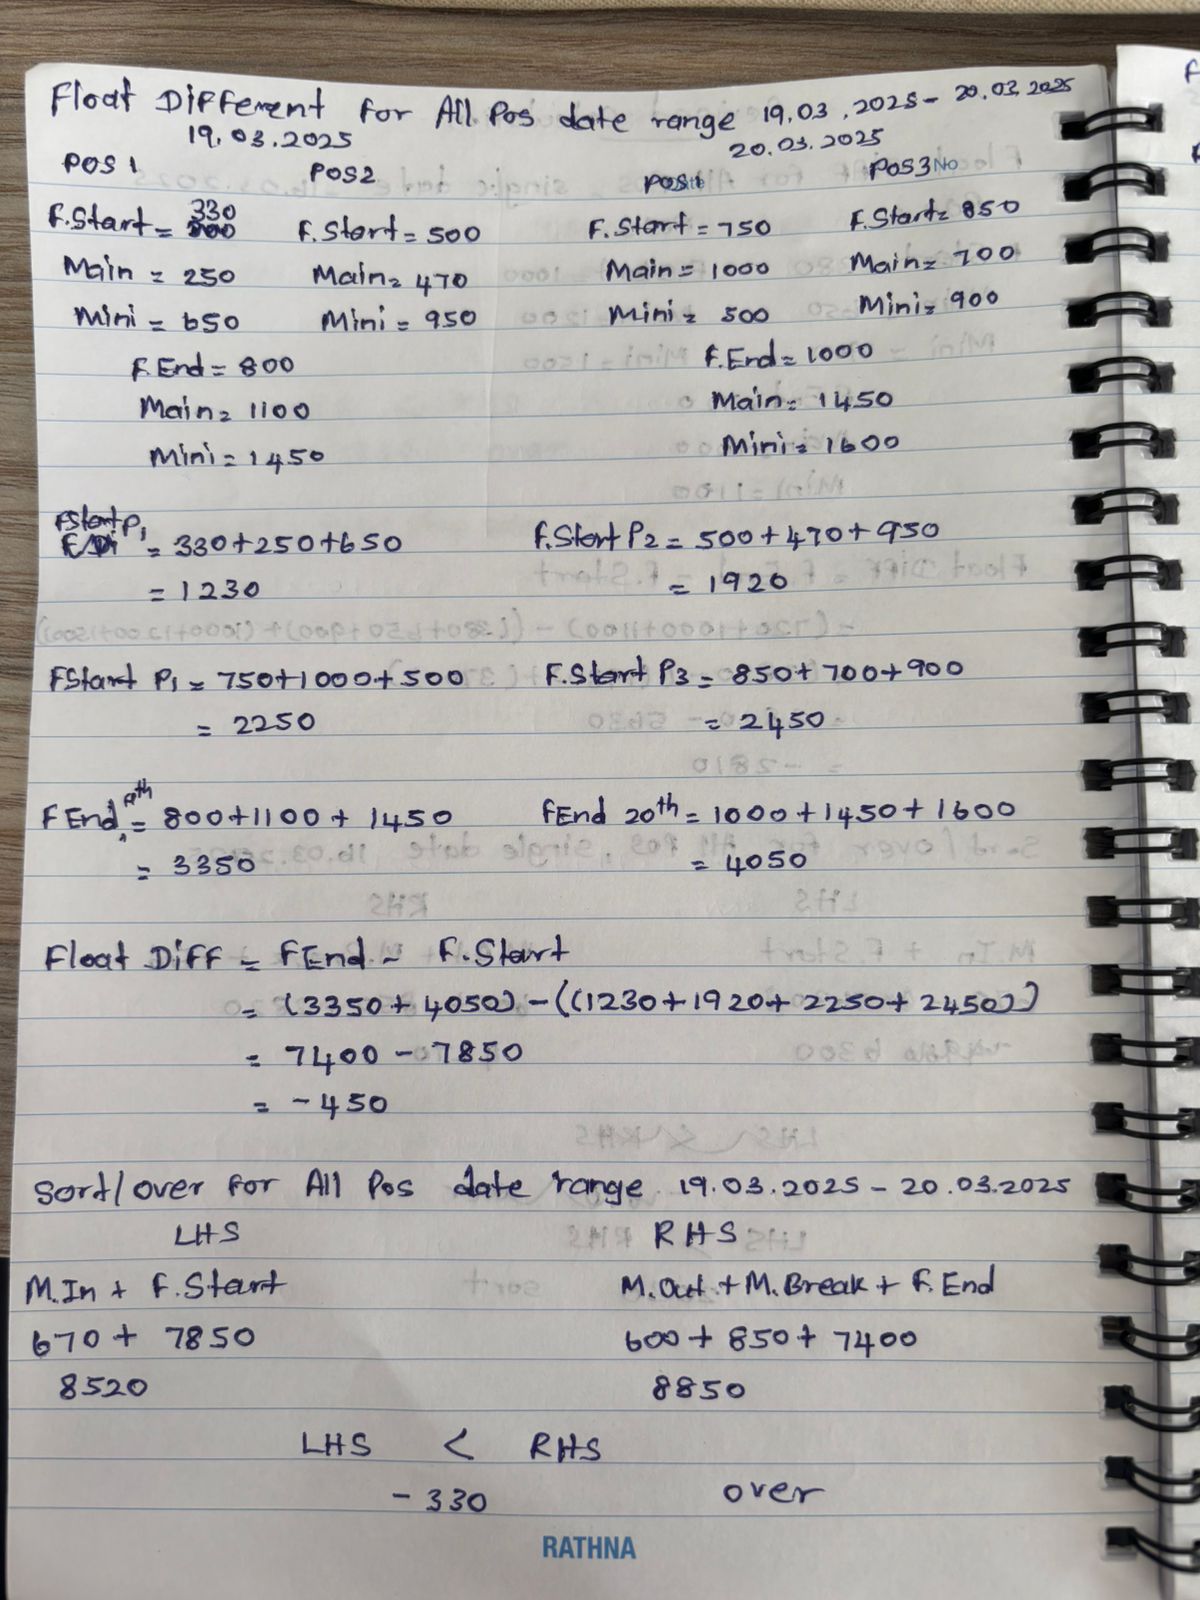 Float Different for All Pos date range 19.03.2025 - 20.03.2025
19.03.2025 20.03.2025
POS 1 POS2 POS1 POS3 No
F.Start = 330 F.Start = 500 F.Start = 750 F.Start = 850
Main = 250 Main = 470 Main = 1000 Main = 700
Mini = 650 Mini = 950 Mini = 500 Mini = 900
F.End = 800 F.End = 1000
Main = 1100 Main = 1450
Mini = 1450 Mini = 1600
FStart P1 = 330+250+650 F.Start P2 = 500+470+950
= 1230 = 1920
FStart P1 = 750+1000+500 F.Start P3 = 850+700+900
= 2250 = 2450
FEnd = 800+1100+1450 FEnd 20th = 1000+1450+1600
= 3350 = 4050
Float Diff = FEnd - F.Start
= (3350+4050) - ((1230+1920+2250+2450))
= 7400 - 7850
= -450
Sort/over for All Pos date range 19.03.2025 - 20.03.2025
LHS RHS
M.In + F.Start M.Out + M.Break + F.End
670 + 7850 600 + 850 + 7400
8520 8850
LHS < RHS
- 330 over
RATHNA